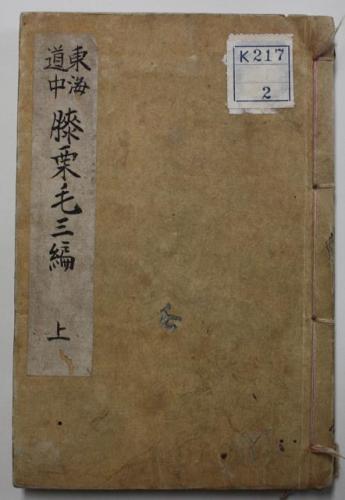 東海
道中
膝栗毛三編
上
K217
2